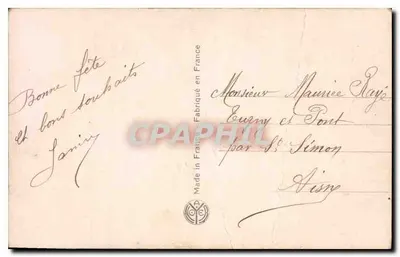 Bonne fête
et bons souhaits
Made in France - Fabriqué en France
Monsieur Maurice
et Pont
par St. Simon
Aisne
CPAPHIL